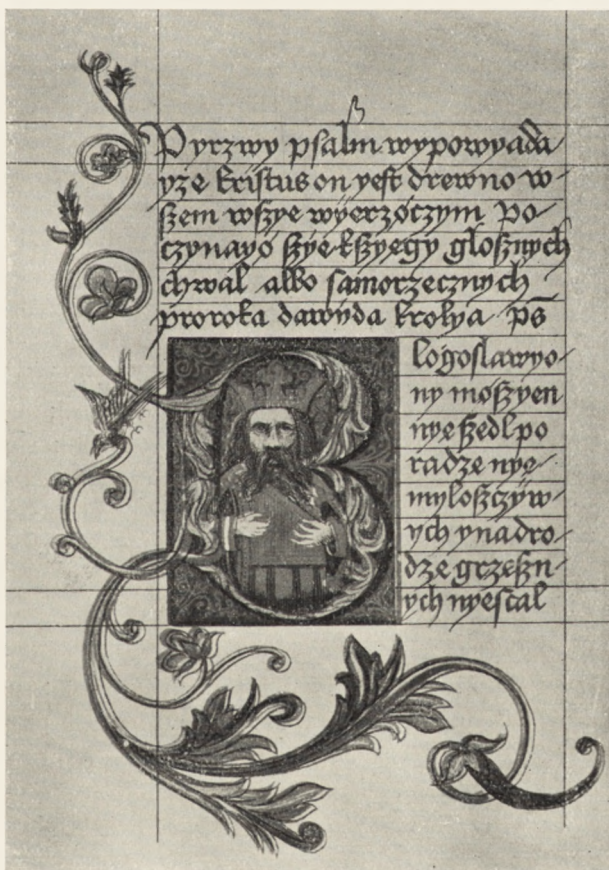 Pyrzwy psalm wypowyada
yze kristus on yest drewno w
szem wszye wyerzoczym Po-
czynayo szye kszyegy glosznych
chwal albo samorzecznych
proroka dawyda krolya ps
Blogoslawyo-
ny moszyen
nye szedl po
radze nye
myloszczyw-
ych ynadro-
dze grzeszn-
ych nyestal